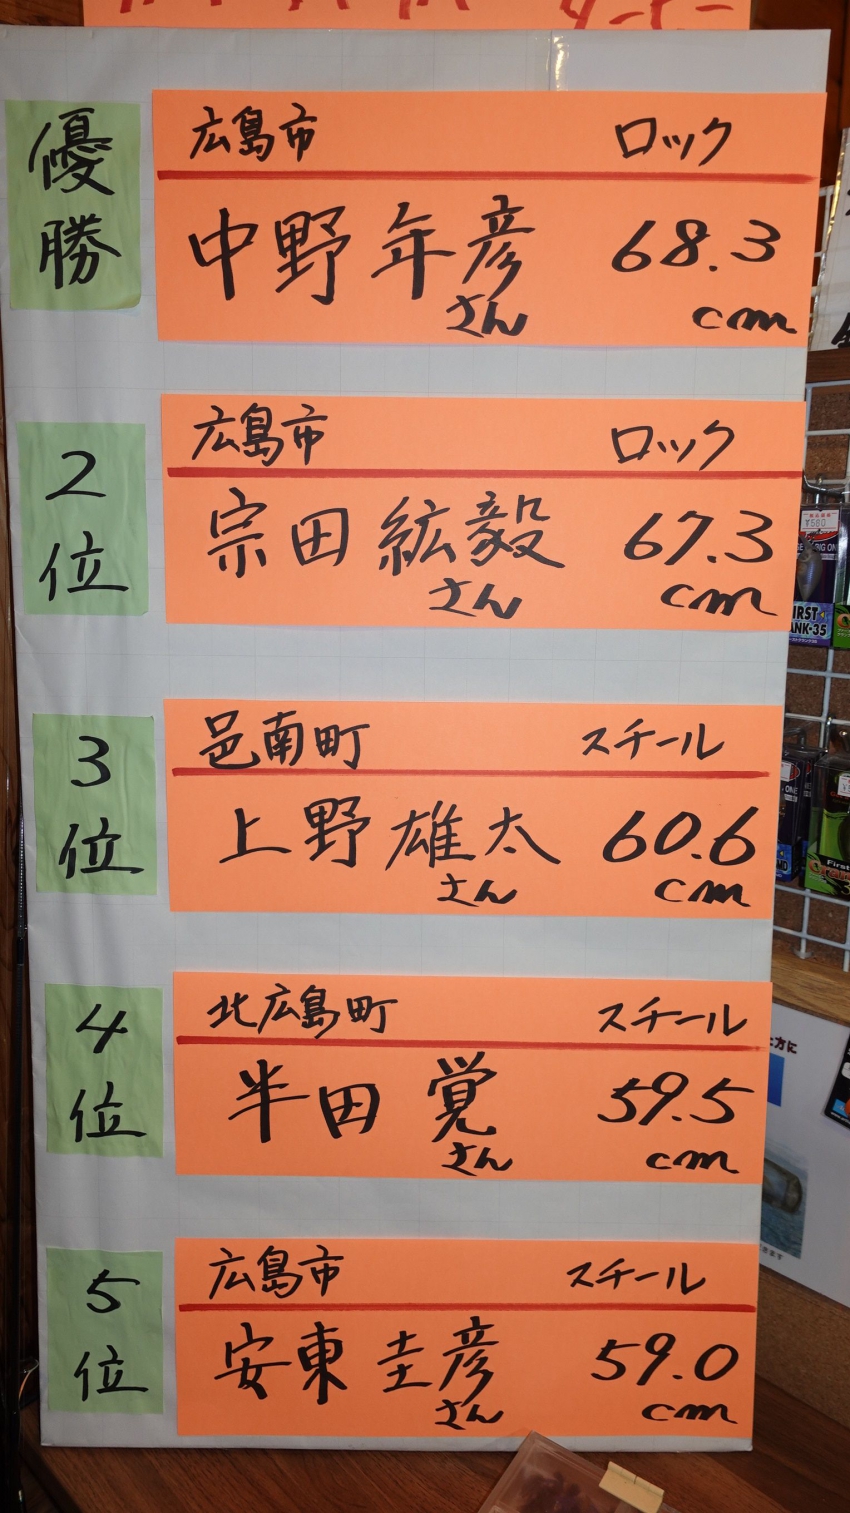 優勝
広島市 ロック
中野 年彦 68.3
さん cm
2位
広島市 ロック
宗田 紘毅 67.3
さん cm
3位
邑南町 スチール
上野 雄太 60.6
さん cm
4位
北広島町 スチール
半田 覚 59.5
さん cm
5位
広島市 スチール
安東 圭彦 59.0
さん cm
¥580
FIRST
ANK-35